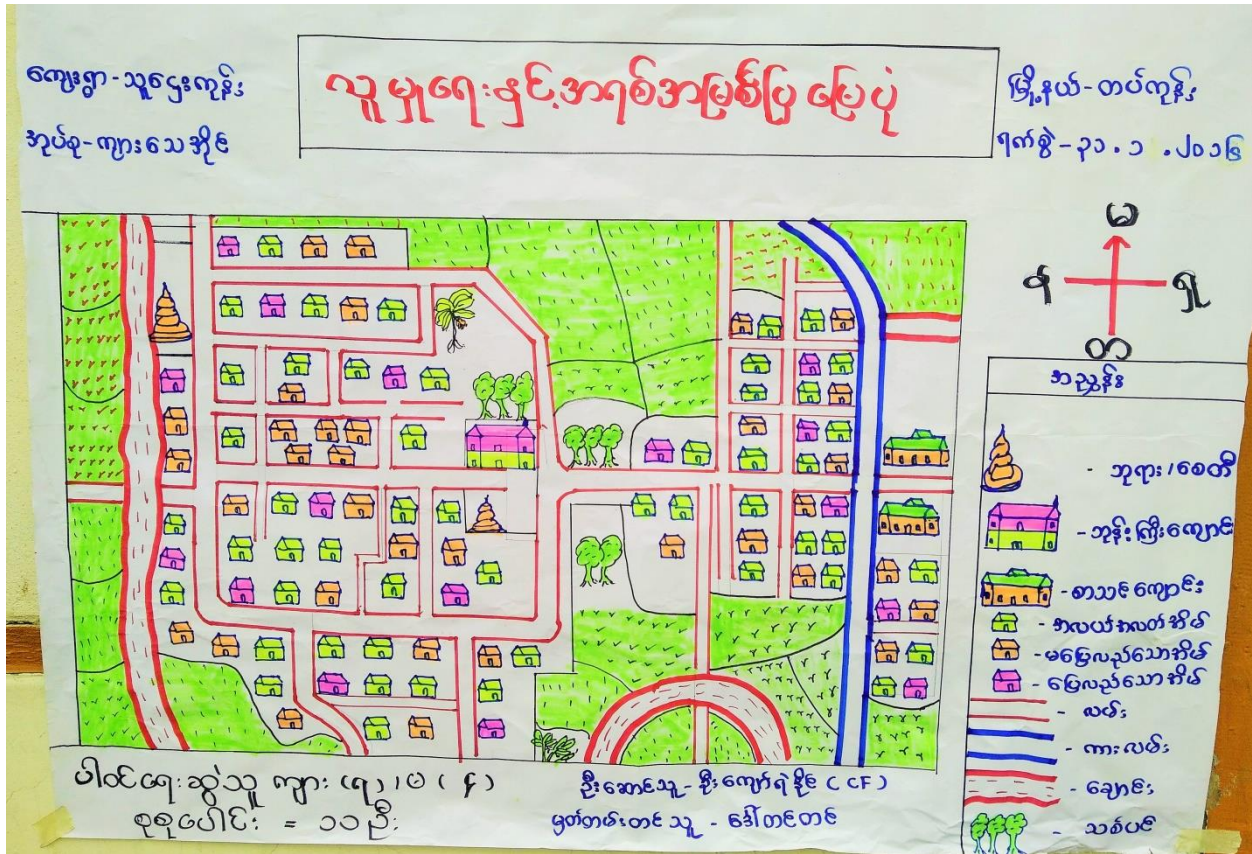 ကျေးရွာ-သူဌေးကုန်း
အုပ်စု-ကျားသေအိုင်
လူမှုရေးနှင့်အရင်းအမြစ်ပြ မြေပုံ
မြို့နယ်-တပ်ကုန်း
ရက်စွဲ-၃၁.၁.၂၀၁၆
မ
န
ရှ
တ
အညွှန်း
- ဘုရား/စေတီ
-ဘုန်းကြီးကျောင်း
-စာသင်ကျောင်း
-အလယ်အလတ်အိမ်
-မပြေလည်သောအိမ်
-ပြေလည်သောအိမ်
- လမ်း
- ကားလမ်း
- ချောင်း
- သစ်ပင်
ပါဝင်ရေးဆွဲသူ ကျား(၇)/မ(၄)
စုစုပေါင်း = ၁၁ဦး
ဦးဆောင်သူ-ဦးကျော်ရဲနိုင်(CCF)
မှတ်တမ်းတင်သူ - ဒေါ်တင်တင်